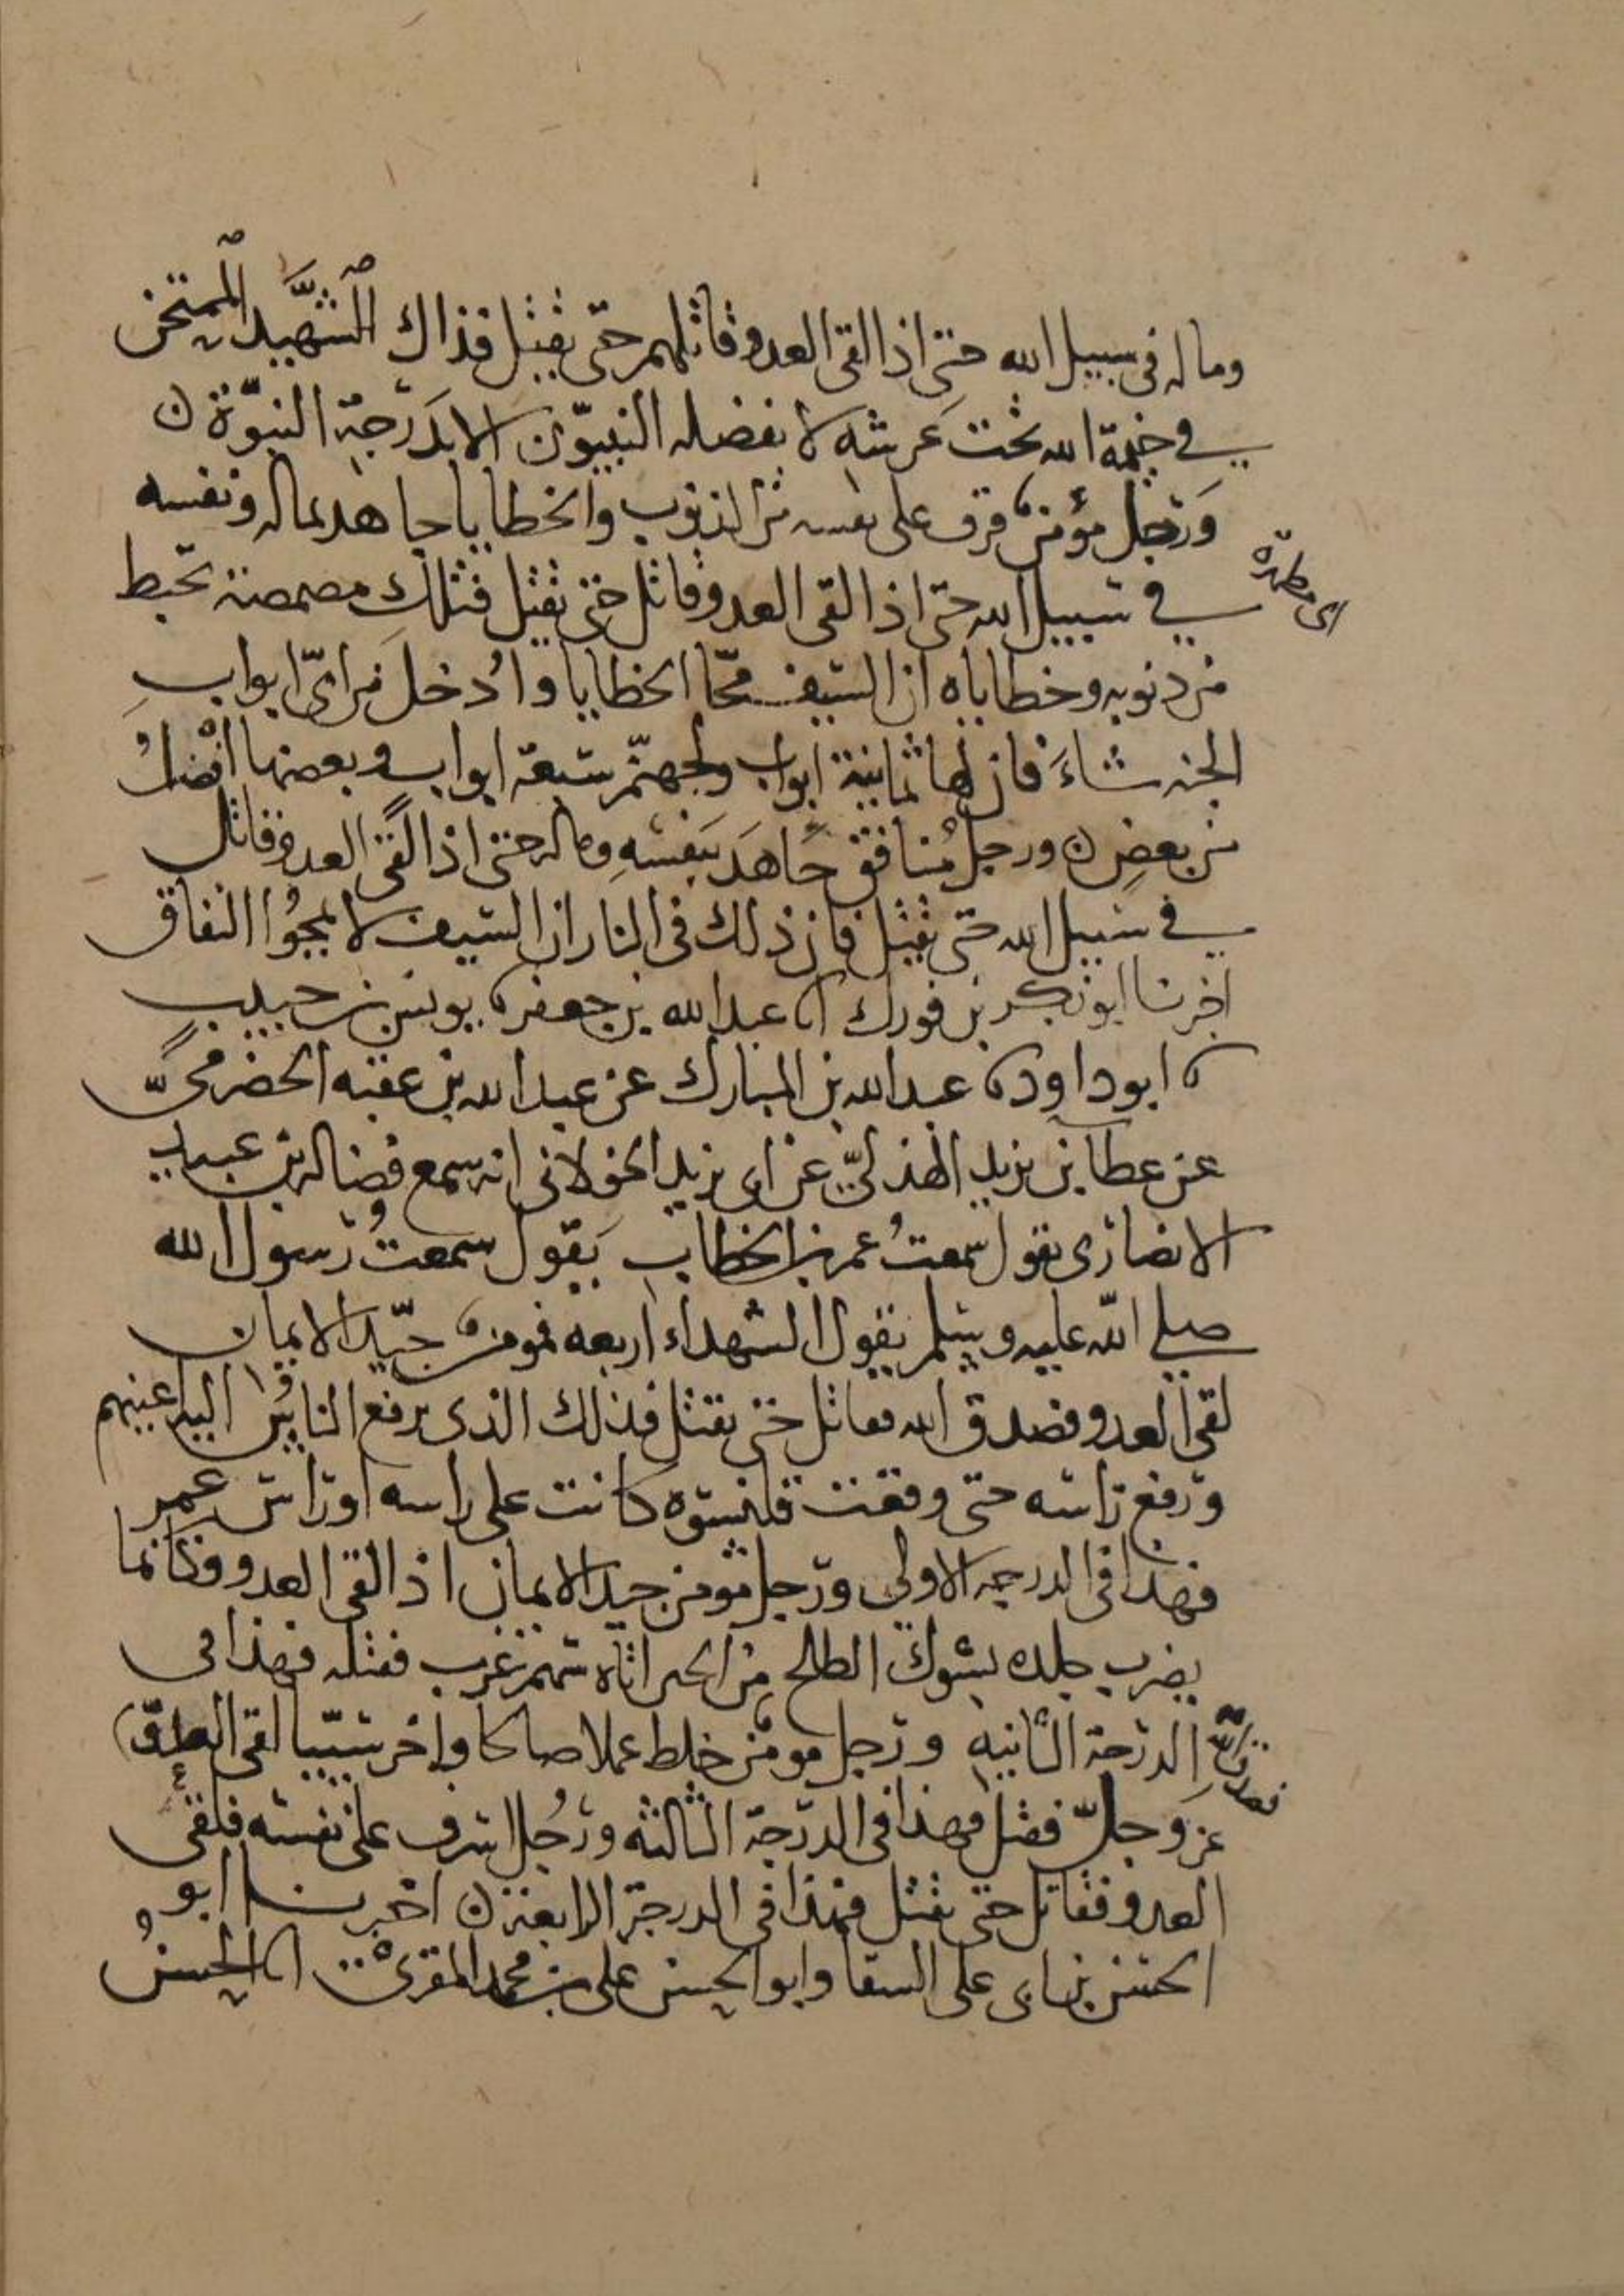 وماله في سبيل الله حتى اذا لقى العدو قاتلهم حتى يقتل فذاك الشهيد الممتحن
في خيمة الله تحت عرشه لا يفضله النبيون الا بدرجة النبوة ن
ورجل مؤمن قرف على نفسه من الذنوب والخطايا جاهد بماله ونفسه
اى مطهرة
في سبيل الله حتى اذا لقى العدو قاتل حتى يقتل فتلك مصمصة تحبط
من ذنوبه وخطاياه ان السيف محّا الخطايا واُدخل من اىّ ابواب
الجنه شاءَ فان لها ثمانية ابواب ولجهنّم سبعة ابواب وبعضها افضلُ
من بعضٍ ن ورجل مُنافق جَاهَدَ بنفسِهِ وماله حتى اذا لقىَ العدو قاتل
في سبيل الله حتى يقتل فان ذلك في النار ان السيف لا يمحُوا النفاق
اخبرنا ابو بكر بن فورك انا عبد الله بن جعفر نا يونس بن حبيب
نا ابو داود نا عبد الله بن المبارك عن عبد الله بن عقبه الحضرمىّ
عن عطا بن يزيد الهذلىّ عن ابى يزيد الخولانى انه سمع فضاله بن عبيد
الانصارى يقول سمعتُ عمر بن الخطاب يَقول سمعتُ رسول الله
صلى الله عليه وسلم يقول الشهداء اربعه فمومن جيّد الايمان
لقى العدو فصدق الله فقاتل حتى يقتل فذلك الذى يرفع الناسُ اليه اعينهم
ورفع راسه حتى وقعت قلنسوه كانت على راسه او راس عمر
فهذا في الدرجه الاولى ورجل مومن جيد الايمان اذا لقى العدو فكانما
يضرب جلده بشوك الطلح من الجبن اتاه سهم غرب فقتله فهذا في
الدرجة الثانيه ورجل مومن خلط عملا صالحا واخر سيّيا لقى العدوّ
فصدق اللهَ
عز وجلّ فقتل فهذا في الدرجة الثالثه ورجُل اسرف على نفسه فلقى
العدو فقاتل حتى يقتل فهذا في الدرجة الرابعة ن اخبرنا ابو
الحسن بن ابى على السقا وابو الحسن على بن محمد المقرىْ انا الحسنُ